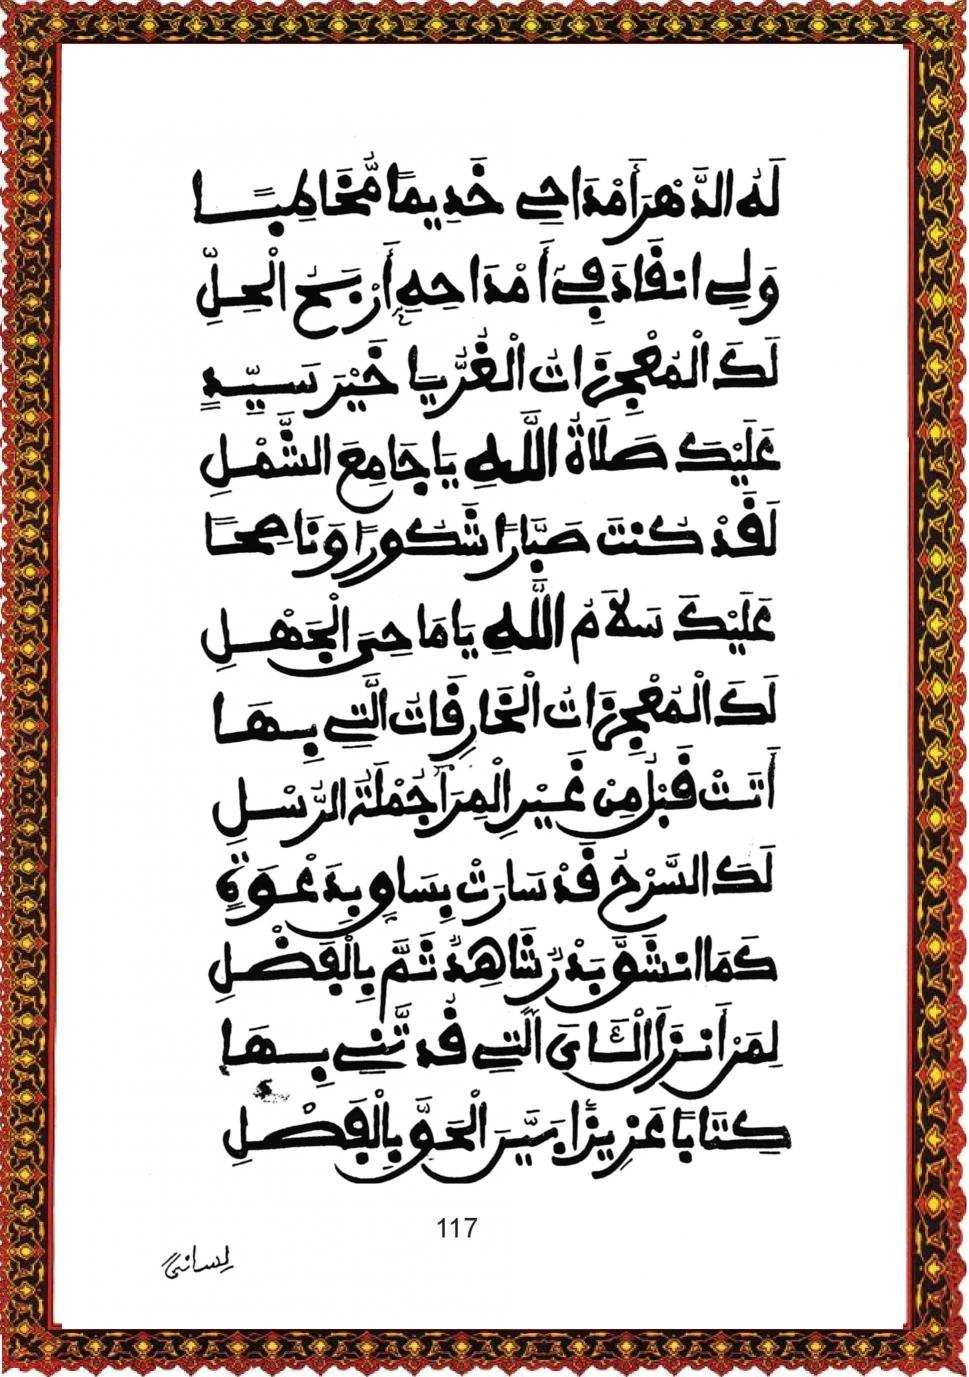 لَهُ الدَّهْرَ أَمْدَاحِي خَدِيمًا مُّخَاطِبًا
وَلِي انفَادَ فِي أَمْدَاحِهِ أَرْبَحُ الْحِلِّ
لَكَ الْمُعْجِزَاتُ الْغُرُّ يَا خَيْرَ سَيِّدٍ
عَلَيْكَ صَلَاةُ اللَّهِ يَا جَامِعَ الشَّمْلِ
لَقَدْ كُنتَ صَبَّارًا شَكُورًا وَنَاصِحًا
عَلَيْكَ سَلَامُ اللَّهِ يَا مَاحِيَ الْجَهْلِ
لَكَ الْمُعْجِزَاتُ الْخَارِقَاتُ الَّتِي بِهَا
أَتَتْ قَبْلُ مِن غَيْرِ الْمِرَا جُمْلَةُ الرُّسْلِ
لَكَ السَّرْحُ قَدْ سَارَتْ بِسَاوٍ بِدَعْوَةٍ
كَمَا انشَقَّ بَدْرٌ شَاهِدٌ ثَمَّ بِالْفَضْلِ
لِمَنْ أَنزَلَ الْـَٔايَ الَّتِي قَدْ تُّنِي بِهَا
كِتَابًا عَزِيزًا بَيَّنَ الْحَقَّ بِالْفَصْلِ
117
لِسانِي